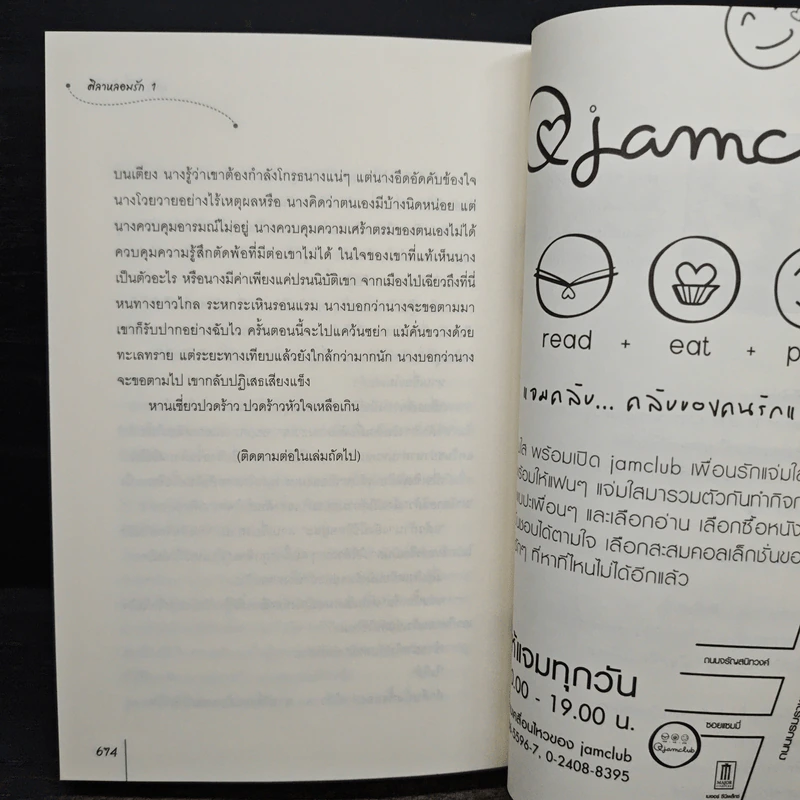 ศิลาหลอมรัก 1
บนเตียง นางรู้ว่าเขาต้องกำลังโกรธนางแน่ๆ แต่นางอึดอัดคับข้องใจ
นางโวยวายอย่างไร้เหตุผลหรือ นางคิดว่าตนเองมีบ้างนิดหน่อย แต่
นางควบคุมอารมณ์ไม่อยู่ นางควบคุมความเศร้าตรมของตนเองไม่ได้
ควบคุมความรู้สึกตัดพ้อที่มีต่อเขาไม่ได้ ในใจของเขาที่แท้เห็นนาง
เป็นตัวอะไร หรือนางมีค่าเพียงแค่ปรนนิบัติเขา จากเมืองไปเฉียวถึงที่นี่
หนทางยาวไกล ระหกระเหินรอนแรม นางบอกว่านางจะขอตามมา
เขาก็รับปากอย่างฉับไว ครั้นตอนนี้จะไปแคว้นซย่า แม้คั่นขวางด้วย
ทะเลทราย แต่ระยะทางเทียบแล้วยังใกล้กว่ามากนัก นางบอกว่านาง
จะขอตามไป เขากลับปฏิเสธเสียงแข็ง
หานเซี่ยวปวดร้าว ปวดร้าวหัวใจเหลือเกิน
(ติดตามต่อในเล่มถัดไป)
674
@jamc
read + eat + p
แจมคลับ... คลับของคนรักแ
ใส พร้อมเปิด jamclub เพื่อนรักแจ่มใส
ร้อมให้แฟนๆ แจ่มใสมารวมตัวกันทำกิจก
บปะเพื่อนๆ และเลือกอ่าน เลือกซื้อหนัง
ชอบได้ตามใจ เลือกสะสมคอลเล็กชั่นขอ
ๆ ที่หาที่ไหนไม่ได้อีกแล้ว
ห้แจมทุกวัน
.00 - 19.00 น.
เคลื่อนไหวของ jamclub
-5596-7, 0-2408-8395
ถนนจรัญสนิทวงศ์
ซอยแซมมี่
@jamclub
MAJOR
เมเจอร์ ซีนีเพล็กซ์